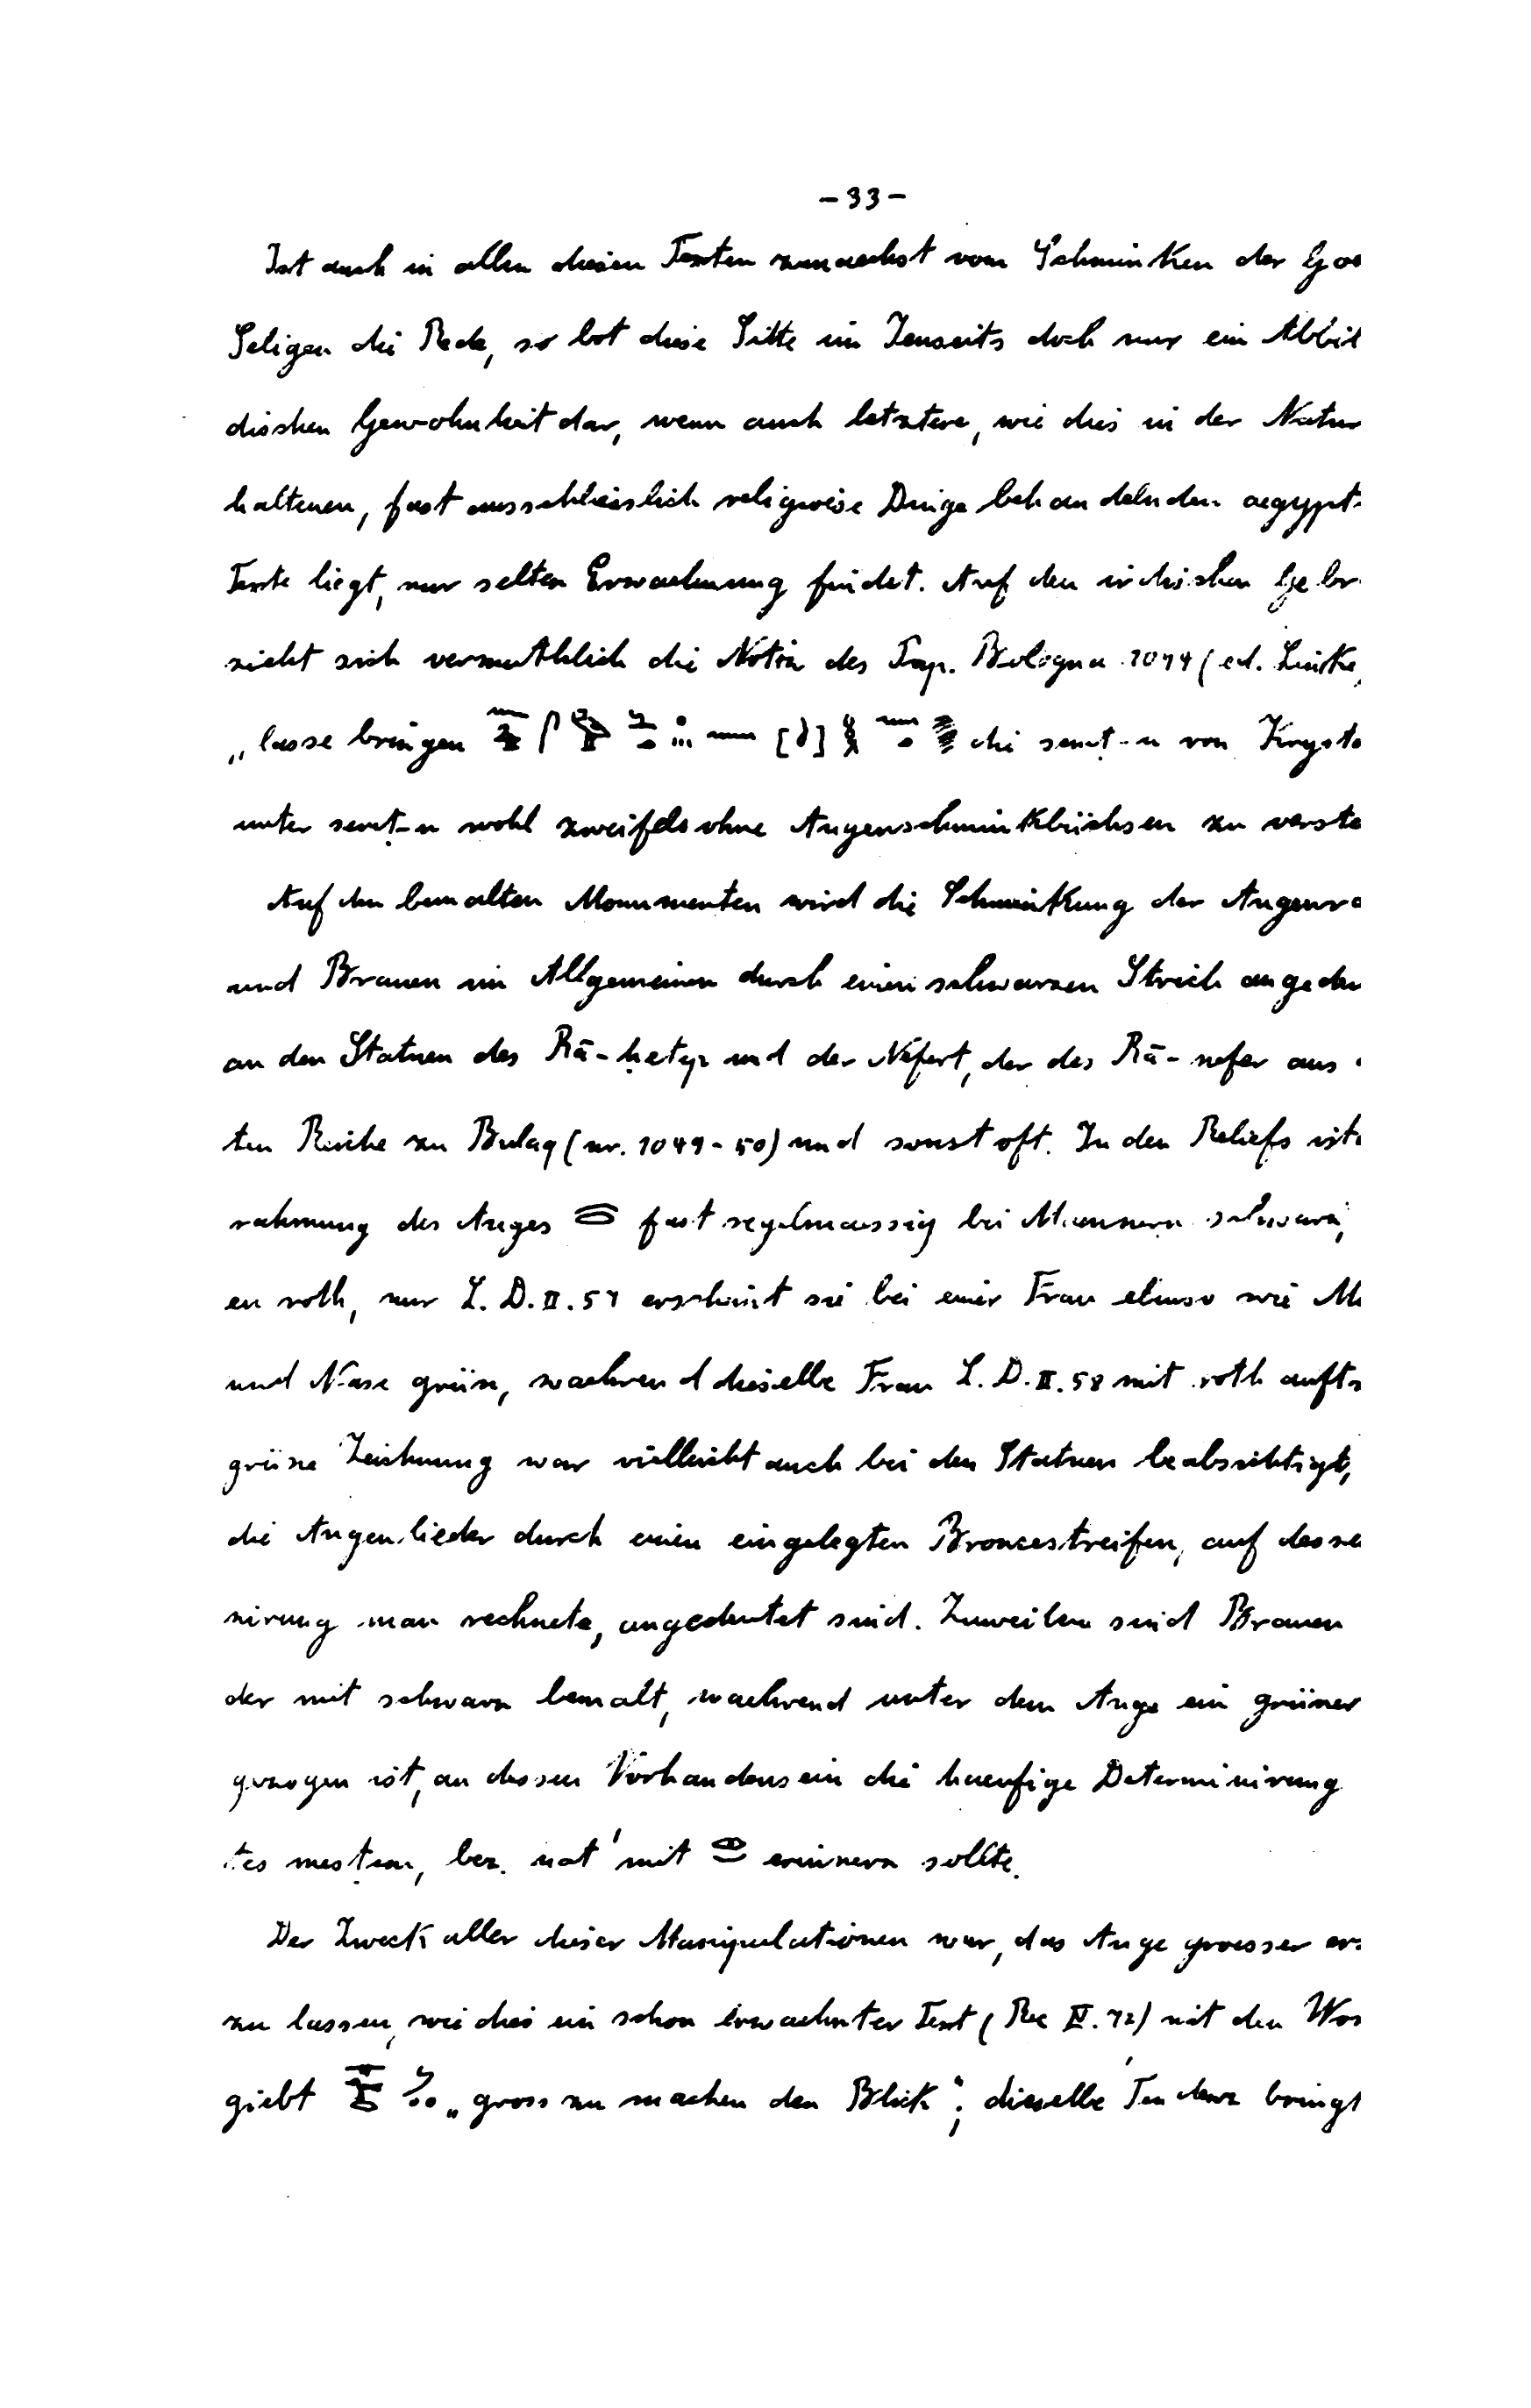 - 33 -
Ist auch in allen diesen Texten zunaechst vom Schminken der Goe
Seligen die Rede, so bot diese Sitte im Jenseits doch nur ein Abbil
dischen Gewohnheit dar, wenn auch letztere, wie dies in der Natur
haltenen, fast ausschliesslich religioese Dinge behandelnden aegypt
Texte liegt, nur selten Erwaehnung findet. Auf den irdischen Gebr
zieht sich vermuthlich die Notiz des Pap. Bologna 1094 (ed. Lincke,
„lasse bringen [ ] die semt-u von Krysta
unter semt-u wohl zweifelsohne Augenschminkbüchsen zu verste
Auf den bemalten Monumenten wird die Schminkung der Augenra
und Brauen im Allgemeinen durch einen schwarzen Strich angedeu
an den Statuen des Rā-ḥetep und der Nefert, der des Rā-nefer aus
ten Reiche zu Bulaq (nr. 1049-50) und sonst oft. In den Reliefs ist
rahmung des Auges fast regelmaessig bei Maennern schwarz,
en roth, nur L. D. II. 57 erscheint sie bei einer Frau ebenso wie M
und Nase grün, waehrend dieselbe Frau L. D. II. 58 mit roth auft
grüne Zeichnung war vielleicht auch bei den Statuen beabsichtigt,
die Augenlieder durch einen eingelegten Broncestreifen, auf desse
nirung man rechnete, angedeutet sind. Zuweilen sind Brauen
der mit schwarz bemalt, waehrend unter dem Auge ein grüner
gezogen ist, an dessen Vorhandensein die haeufige Determinirung
tes mesṭem, bez. uat' mit erinnern sollte.
Der Zweck aller dieser Manipulationen war, das Auge groesser er
zu lassen, wie dies ein schon erwaehnter Text (Rec IV. 72) mit den Wor
giebt „gross zu machen den Blick“; dieselbe Tendenz bringt